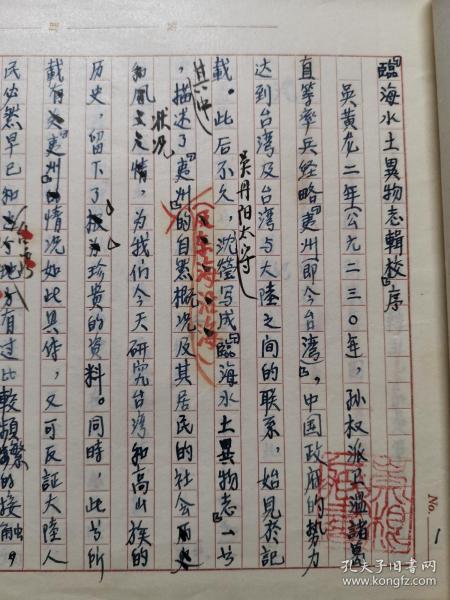 「臨海水土異物志輯校」序
吳黃龙二年(公元二三〇年，孙权派卫溫諸葛
直等率兵经略「夷州」(即今台湾)，中国政府的势力
达到台湾及台湾与大陸之间的联系，始見於記
載。此后不久，吴丹阳太守沈瑩写成「臨海水土異物志」一书
，其中描述了「夷州」的自然概况及其居民的社会历史状况
和風土人情，为我们今天研究台湾和高山族的
历史，留下了极为珍貴的资料。同時，此书所
載有关「夷州」的情况如此具体，又可反証大陸人
民必然早已和这个地方有过比較頻繁的接触，
No. 1
孔夫子旧书网